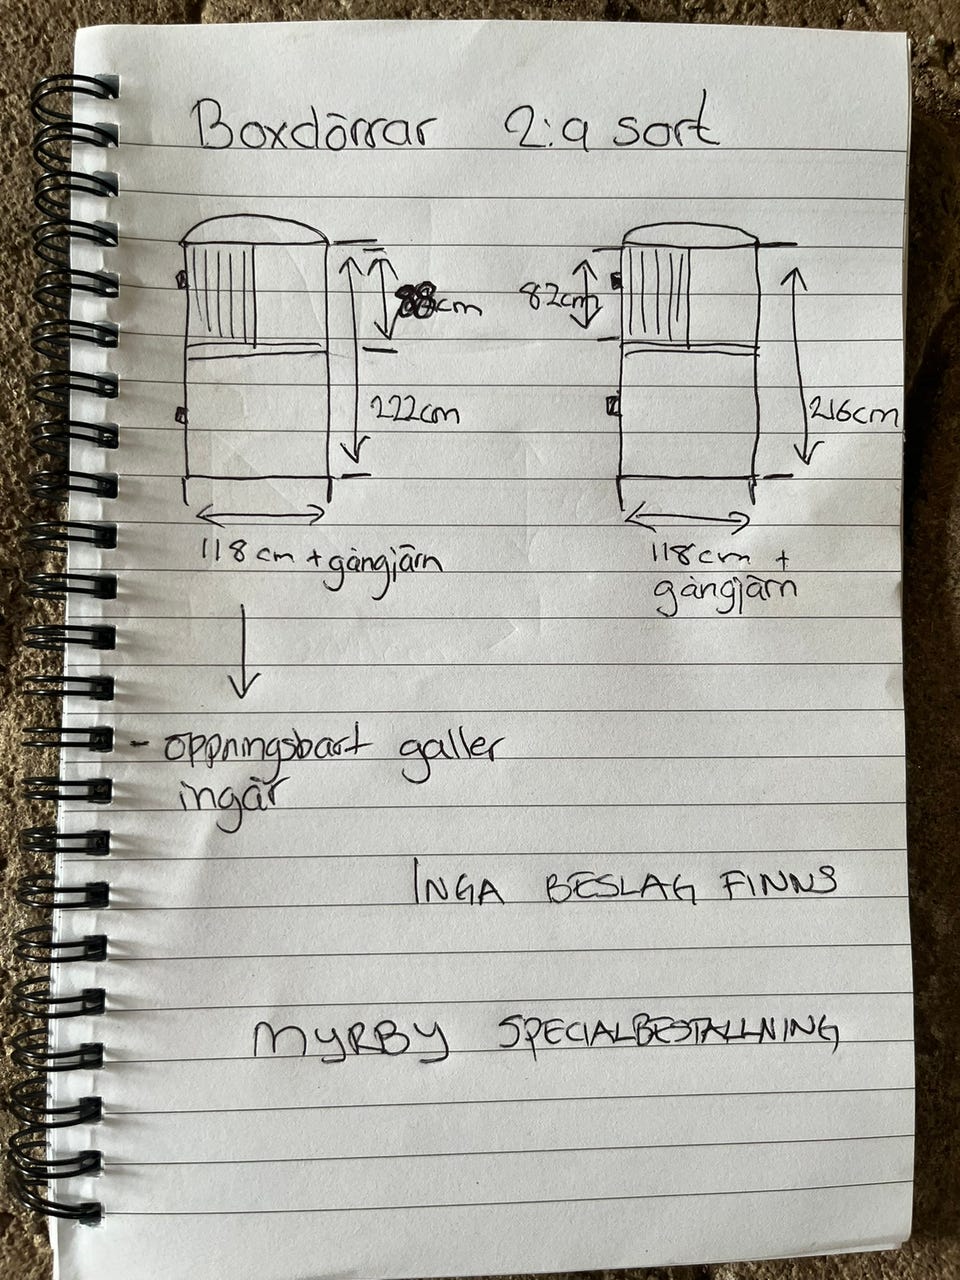 Boxdörrar 2:a sort
88cm
82cm
222cm
216cm
118cm + gångjärn
118cm +
gångjärn
- öppningsbart galler
ingår
INGA BESLAG FINNS
MYRBY SPECIALBESTÄLLNING